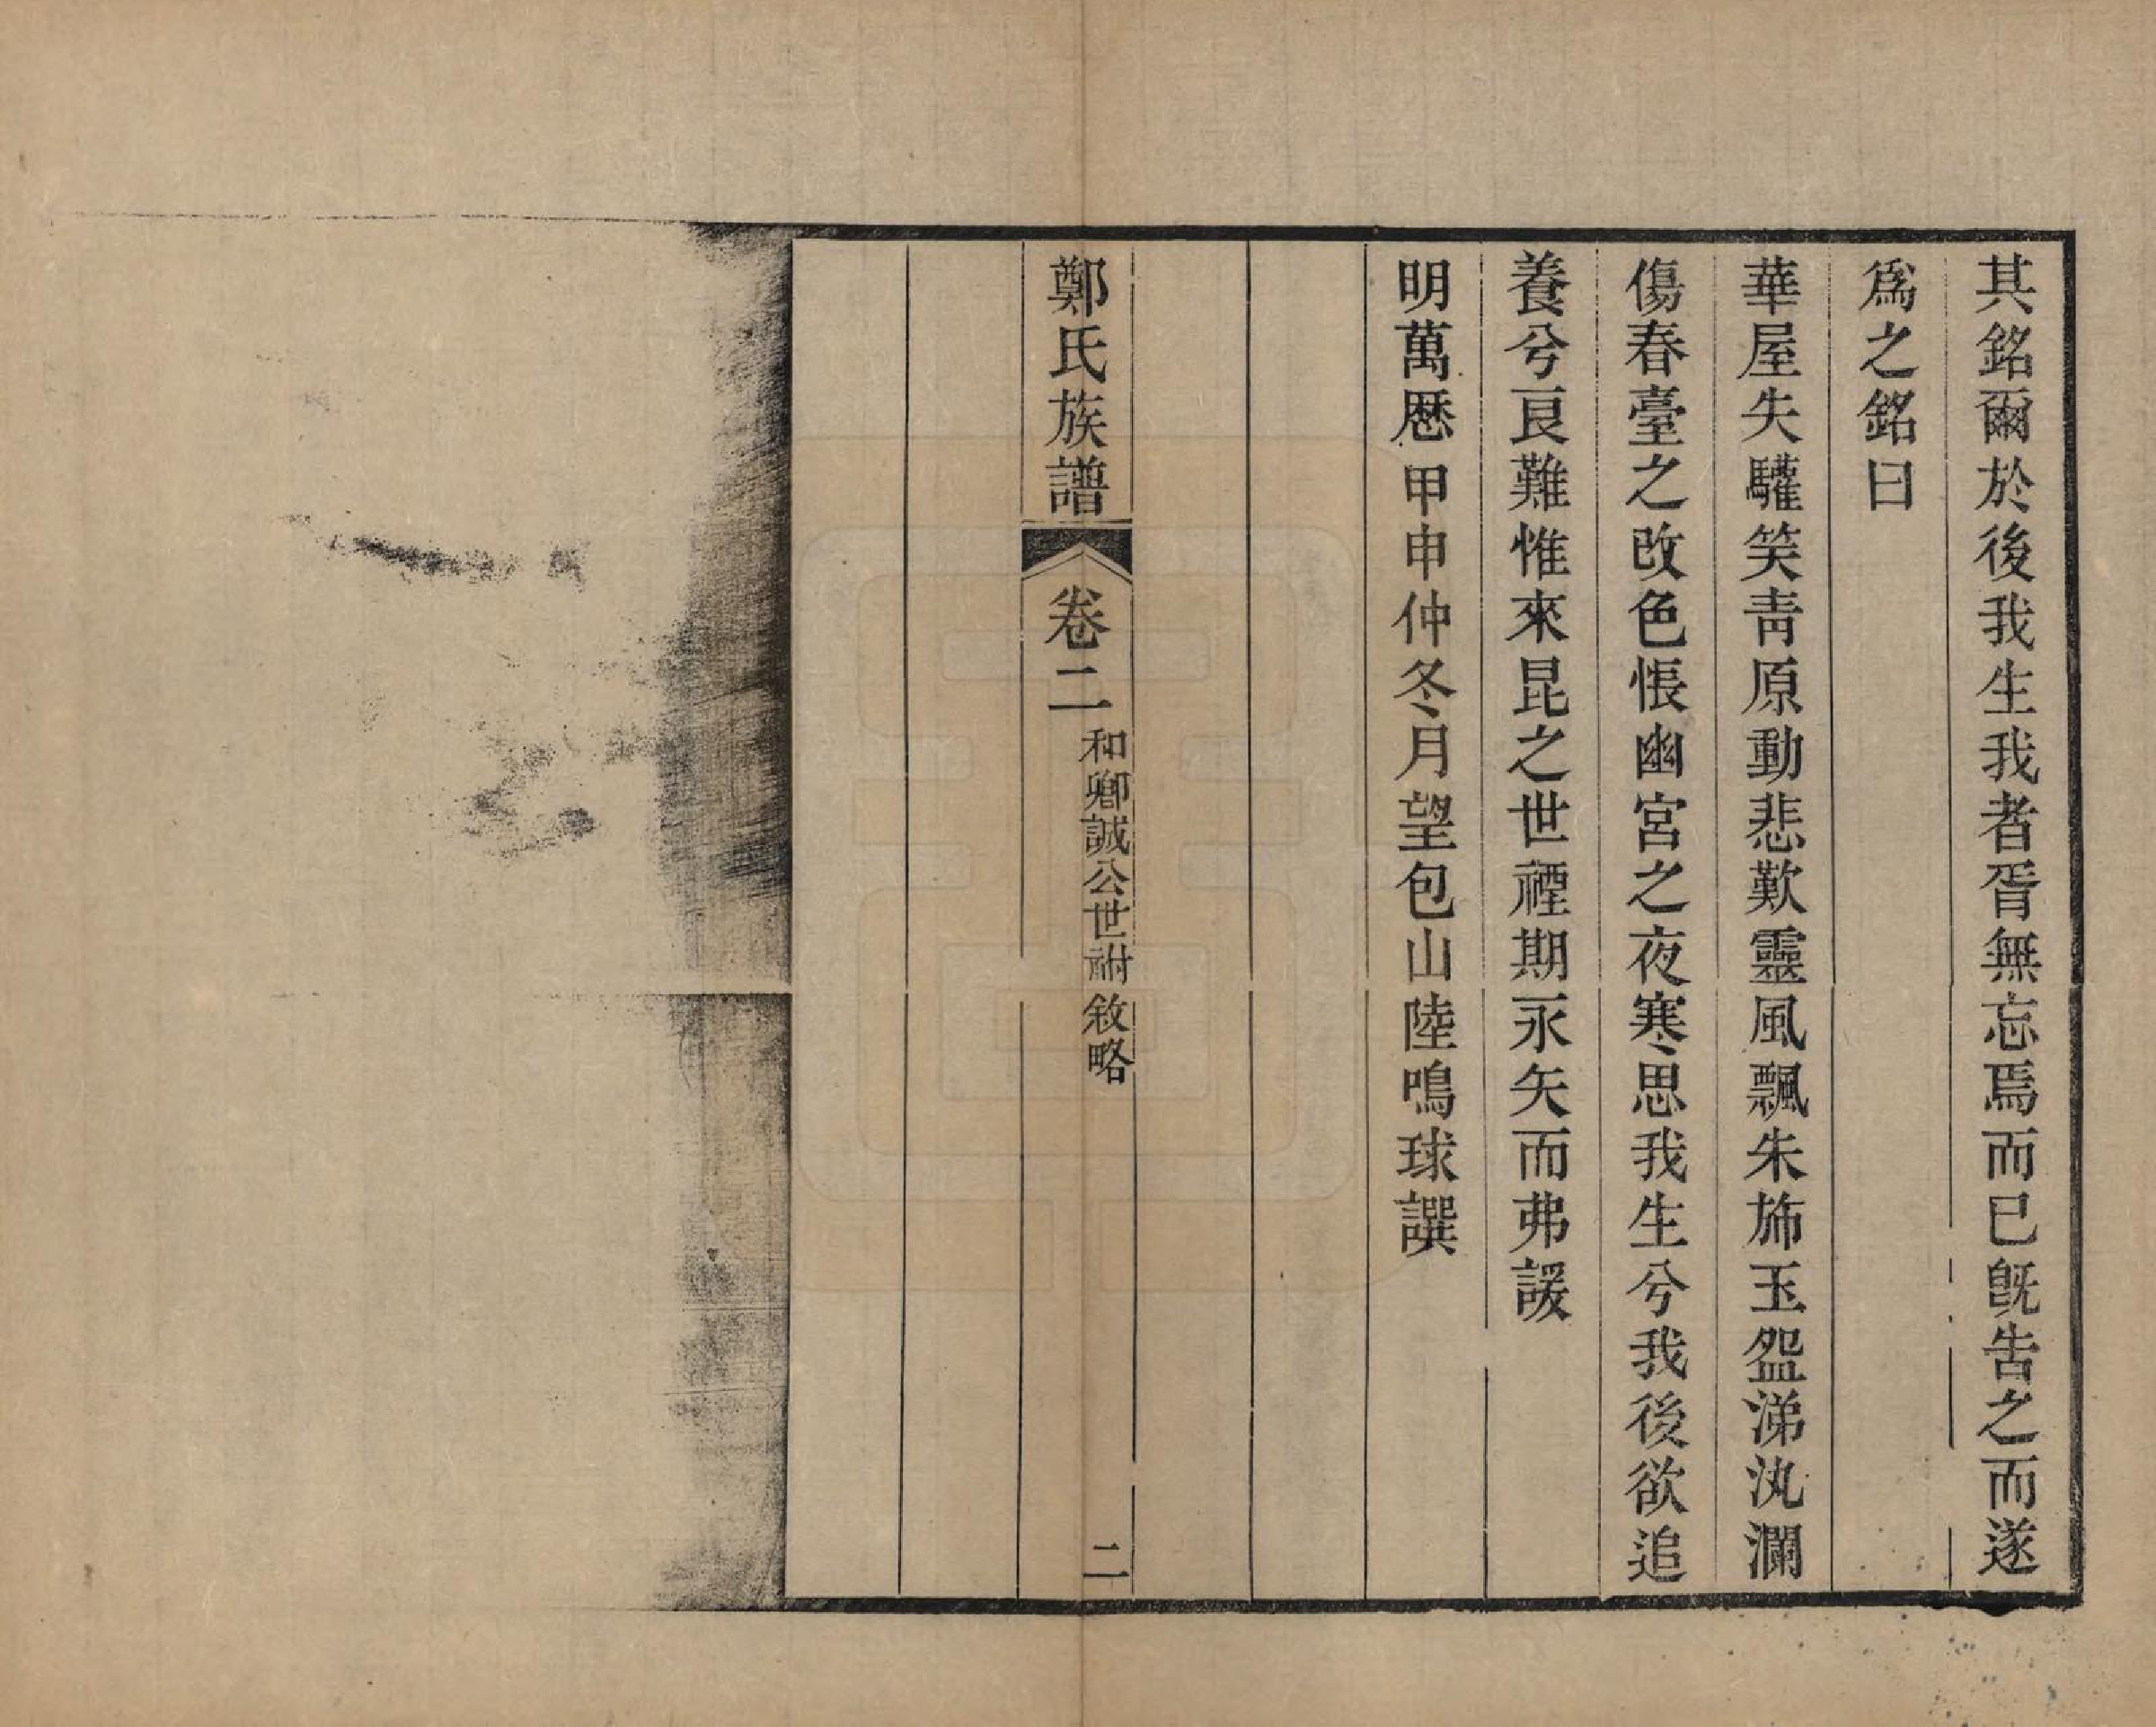 其銘爾於後我生我者胥無忘焉而已旣告之而遂
爲之銘曰
華屋失驩笑靑原動悲歎靈風飄朱斾玉盌涕汍瀾
傷春臺之改色悵幽宮之夜寒思我生兮我後欲追
養兮艮難惟來昆之世禋期永矢而弗諼
明萬厯甲申仲冬月望包山陸鳴球譔
鄭氏族譜
卷二
和卿誠公世祔敘略
二